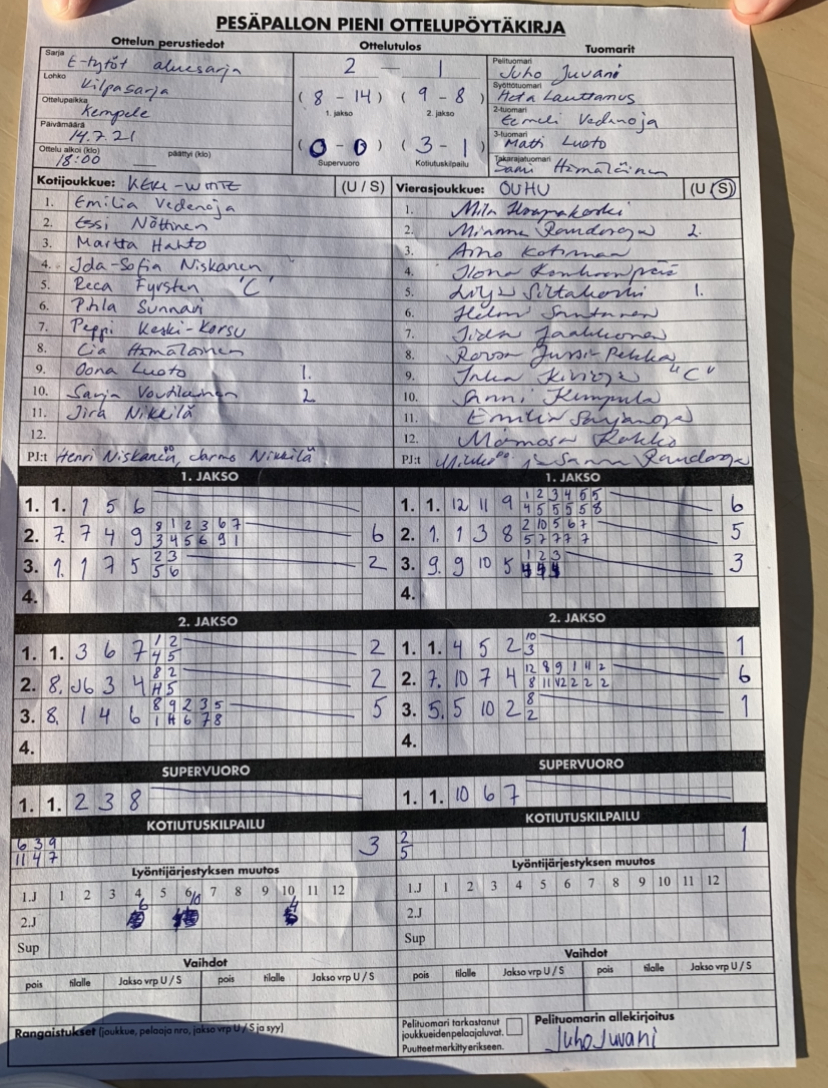 PESÄPALLON PIENI OTTELUPÖYTÄKIRJA
Ottelun perustiedot
Sarja
E-tytöt aluesarja
Lohko
Kilpasarja
Ottelupaikka
Kempele
Päivämäärä
14.7.21
Ottelu alkoi (klo) päättyi (klo)
18:00
Ottelutulos
2 — 1
(8 - 14) (9 - 8)
1. jakso 2. jakso
(0 - 0) (3 - 1)
Supervuoro Kotiutuskilpailu
Tuomarit
Pelituomari
Juho Juvani
Syöttötuomari
Lauttamus
2-tuomari
Eemeli Vedenoja
3-tuomari
Matti Luoto
Takarajatuomari
Sami Hämäläinen
Kotijoukkue: (U / S)
1. Emilia Vedenoja
2. Essi Nöttinen
3. Martta Hahto
4. Ida-Sofia Niskanen
5. Reca Fyrsten "C"
6. Pihla Sunnari
7. Peppi Keski-Korsu
8. Cia Hämäläinen
9. Oona Luoto 1.
10. Sanja Voutilainen 2
11. Jira Nikkilä
12.
PJ:t Henri Niskanen, Jarmo Nikkilä
Vierasjoukkue: OUHU (U / S)
1. Mila Haapakoski
2. Minma 2.
3. Aino
4. Ilona
5. Siltakoski 1.
6. Helmi Santanen
7. Iida Jaakkonen
8. Jussi-Pekka
9. Inka Kivioja "C"
10. Sanni Kempula
11. Emilia
12. Mamosa
PJ:t ja Sanna
1. JAKSO
1. 1. 1 5 6
2. 7. 7 4 9 8 1 2 3 6 7 6
3 4 5 6 9 1
3. 1. 1 7 5 2 3 2
5 6
4.
1. JAKSO
1. 1. 12 11 9 1 2 3 4 5 5 6
4 5 5 5 5 8
2. 1. 1 3 8 2 10 5 6 7 5
5 7 7 7 7
3. 9. 9 10 5 1 2 3 3
4 4 4
4.
2. JAKSO
1. 1. 3 6 7 1 2 2
4 5
2. 8. 6 3 4 8 2 2
11 5
3. 8. 1 4 6 8 9 2 3 5 5
1 11 6 7 8
4.
2. JAKSO
1. 1. 4 5 2 10 1
3
2. 7. 10 7 4 12 8 9 1 11 2 6
8 11 12 2 2 2
3. 5. 5 10 2 8 1
2
4.
SUPERVUORO
1. 1. 2 3 8
SUPERVUORO
1. 1. 10 6 7
KOTIUTUSKILPAILU
6 3 9 3
11 4 7
KOTIUTUSKILPAILU
2 1
5
Lyöntijärjestyksen muutos
1.J 1 2 3 4 5 6 7 8 9 10 11 12
6 10 4
2.J
Sup
Lyöntijärjestyksen muutos
1.J 1 2 3 4 5 6 7 8 9 10 11 12
2.J
Sup
Vaihdot
pois tilalle Jakso vrp U / S pois tilalle Jakso vrp U / S
Vaihdot
pois tilalle Jakso vrp U / S pois tilalle Jakso vrp U / S
Rangaistukset (joukkue, pelaaja nro, jakso vrp U / S ja syy)
Pelituomari tarkastanut
joukkueidenpelaajaluvat.
Puutteet merkitty erikseen.
Pelituomarin allekirjoitus
Juho Juvani